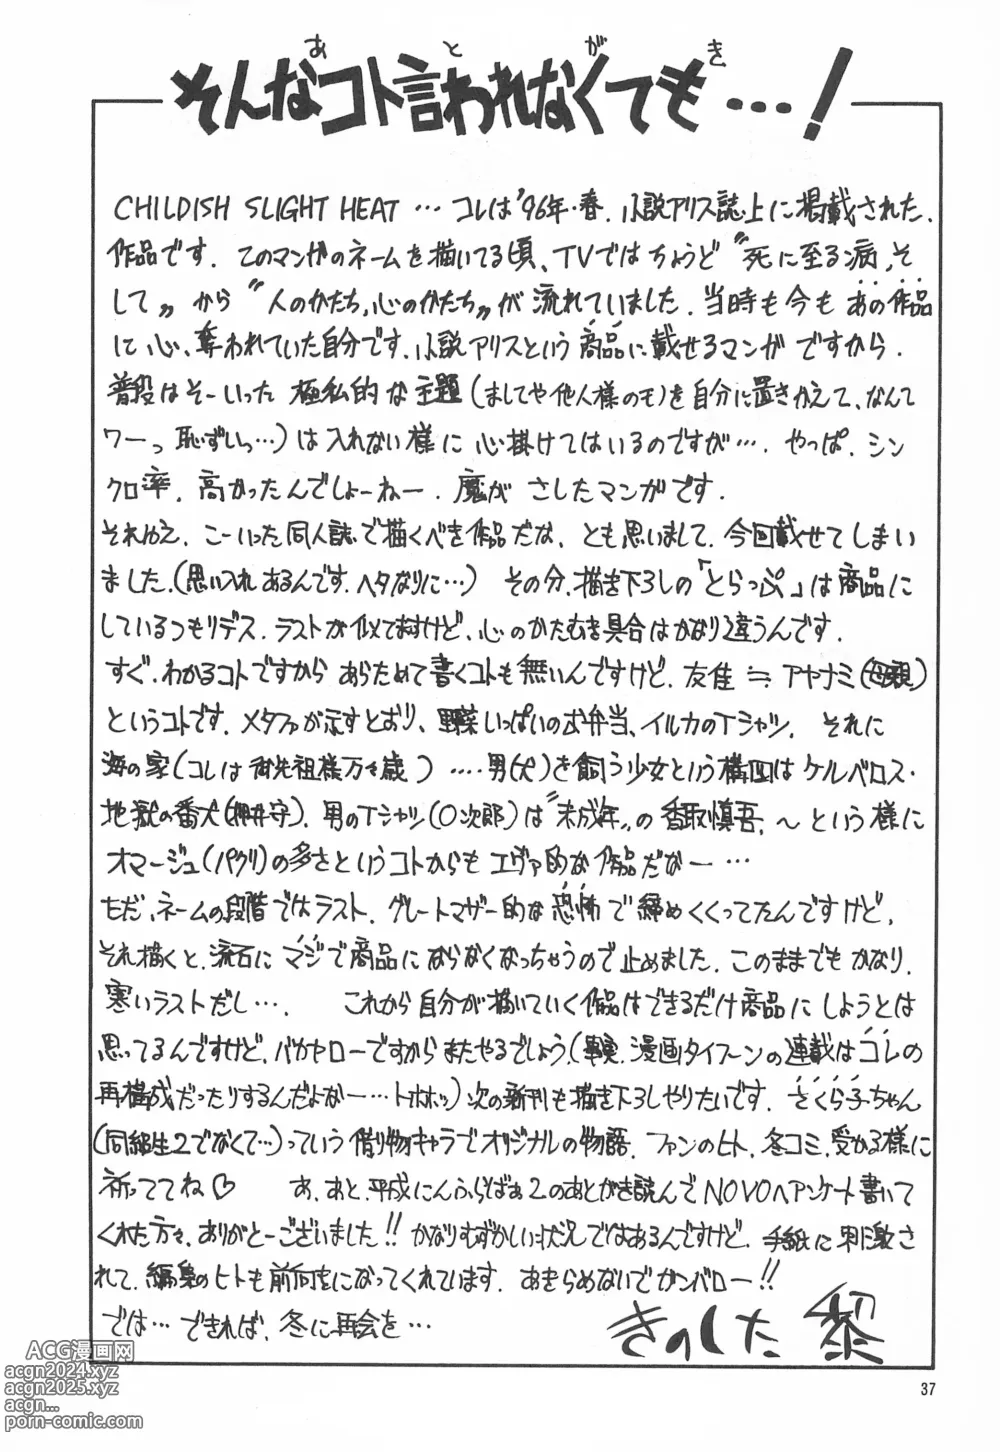 あとがき
そんなコト言われなくても…!
CHILDISH SLIGHT HEAT … コレは'96年・春、小説アリス誌上に掲載された、
作品です。このマンガのネームを描いてる頃、TVではちょうど〝死に至る病、そ
して〟から〝人のかたち、心のかたち〟が流れていました。当時も今もあの作品
に心、奪われていた自分です。小説アリスという商品に載せるマンガですから、
普段はそーいった極私的な主題(ましてや他人様のモ)を自分に置きかえて、なんて
ワーっ恥ずいっ…)は入れない様に心掛けてはいるのですが…。やっぱ、シン
クロ率、高かったんでしょーねー。魔がさしたマンガです。
それゆえ、こーいった同人誌で描くべき作品だな、とも思いまして、今回載せてしまい
ました。(思い入れあるんです。ヘタなりに…) その分、描き下ろしの「とらっぷ」は商品に
しているつもりデス。ラストが似てますけど、心のかたむき具合はかなり違うんです。
すぐ、わかるコトですからあらためて書くコトも無いんですけど、友佳≒アヤナミ(母親)
というコトです。メタファが示すとおり、野菜いっぱいのお弁当、イルカのTシャツ、それに
海の家(コレは御先祖様万々歳)‥‥男(犬)を飼う少女という構図はケルベロス・
地獄の番犬(押井守)、男のTシャツ(O次郎)は〝未成年〟の香取慎吾、〜という様に
オマージュ(パクリ)の多さというコトからもエヴァ的な作品だなー…
ただ、ネームの段階ではラスト、グレートマザー的な恐怖で締めくくってたんですけど、
それ描くと、流石にマジで商品にならなくなっちゃうので止めました。このままでもかなり、
寒いラストだし…。 これから自分が描いていく作品はできるだけ商品にしようとは
思ってるんですけど、バカヤローですからまたやるでしょう。(事実、漫画タイフーンの連載はコレの
再構成だったりするんだよなー…トホホッ)次の新刊も描き下ろしやりたいです。さくら子ちゃん
(同級生2でなくて…)っていう借り物キャラでオリジナルの物語、ファンのヒト、冬コミ、受かる様に
祈っててね♡ あ、あと、平成にんふらばぁ2のあとがき読んでNOVOへアンケート書いて
くれた方々、ありがとーございました!! かなりむずかしい状況ではあるんですけど、手紙に刺激さ
れて、編集のヒトも前向きになってくれています。あきらめないでガンバロー!!
では… できれば、冬に再会を…
きのした黎
37
ACG漫画网
acgn2024.xyz
acgn2025.xyz
acgn...
porn-comic.com